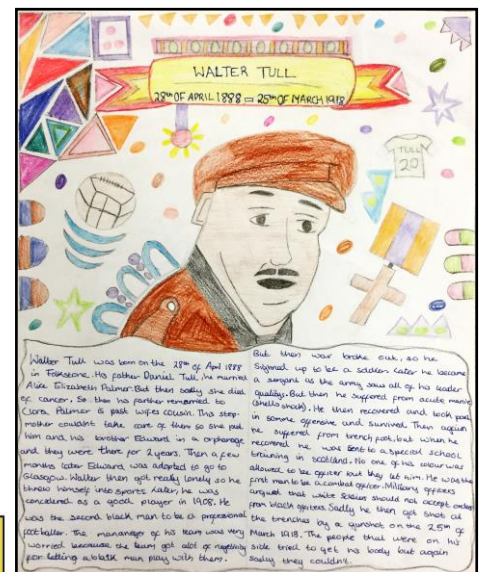 WALTER TULL
28th OF APRIL 1888 - 25th OF MARCH 1918
TULL
20
Walter Tull was born on the 28th of April 1888
in Folkstone. His father Daniel Tull, he married
Alice Elizabeth Palmer. But then sadly she died
of cancer. So then his farther remarried to
Clara Palmer is past wifes cousin. This step
mother couldnt take care of them so she put
him and his brother Edward in a orphanage
and they were there for 2 years. Then a few
months later Edward was adopted to go to
Glasgow. Walter then got really lonely so he
threw himself into sports. Later, he was
concidered as a good player in 1908. He
was the second black man to be a professional
football er. The mananger of his team was very
worried because the team got alot of negitivity
for letting a black man play with them.
But then war broke out, so he
signed up to be a soldier. Later he became
a sergant as the army saw all of his leader
quality. But then he suffered from acute mania
(shells shock). He then recovered and took part
in somme offensive and survived. Then again
he suffered from trench foot, but when he
recovered he was sent to a special school
training in scotland. No one of his colour was
allowed to be officer but they let him. He was the
first man to be a combat officer. Military officers
argued that white soldiers should not accept orders
from black officers. Sadly he then got shot at
the trenches by a gunshot on the 25th of
March 1918. The people that were on his
side tried to get his body but again
sadly they couldn't.